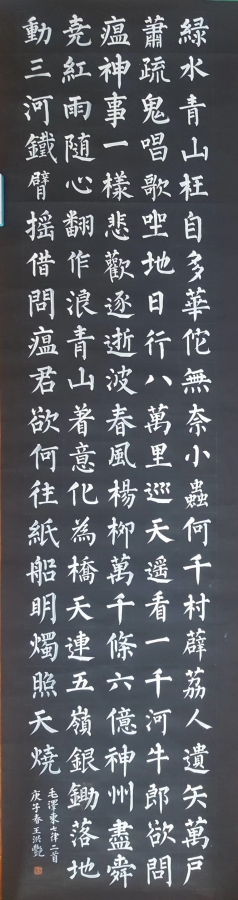 綠水青山枉自多華佗無奈小蟲何千村薜荔人遺矢萬戶
蕭疏鬼唱歌坐地日行八萬里巡天遙看一千河牛郎欲問
瘟神事一樣悲歡逐逝波春風楊柳萬千條六億神州盡舜
堯紅雨随心翻作浪青山着意化為橋天連五嶺銀鋤落地
動三河鐵臂摇借問瘟君欲何往紙船明燭照天燒
毛澤東七律二首
庚子春王洪艷